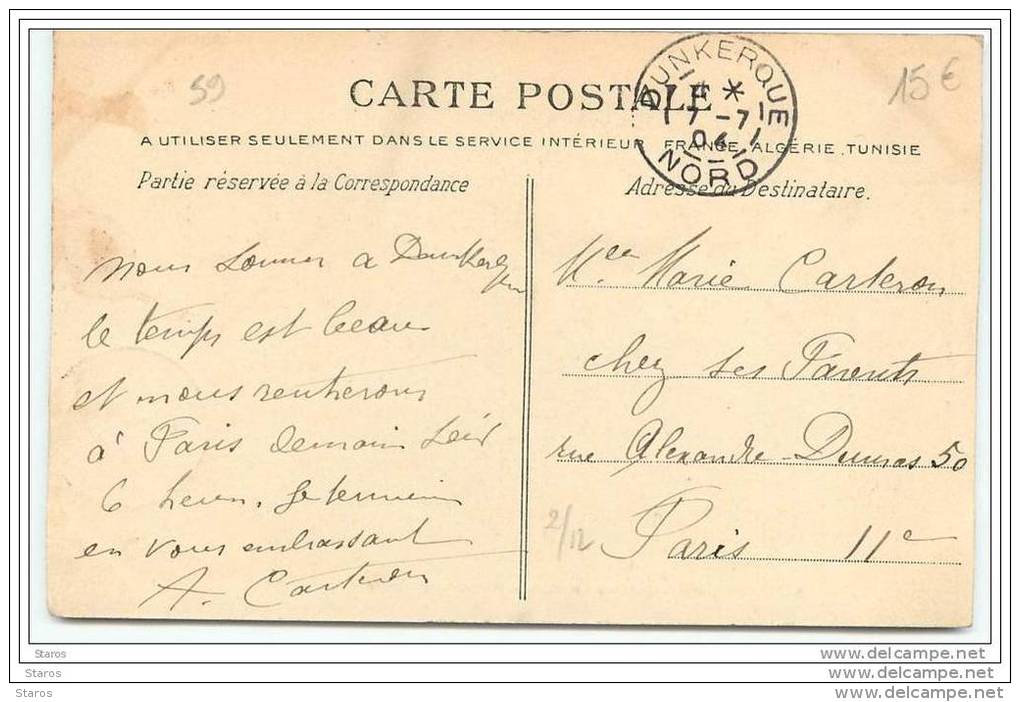 59
15€
CARTE POSTALE
DUNKERQUE
*
17 -7
04
NORD
A UTILISER SEULEMENT DANS LE SERVICE INTÉRIEUR FRANCE, ALGÉRIE, TUNISIE
Partie réservée à la Correspondance
Adresse du Destinataire.
nous sommes a Dunkerque
le temps est beau
et nous rentrerons
à Paris demain soir
6 heures. Je termine
en vous embrassant
A. Carteron
Mlle Marie Carteron
chez ses Parents
rue Alexandre-Dumas 50
2/12
Paris 11e
Staros
www.delcampe.net
Staros
www.delcampe.net
Staros
www.delcampe.net